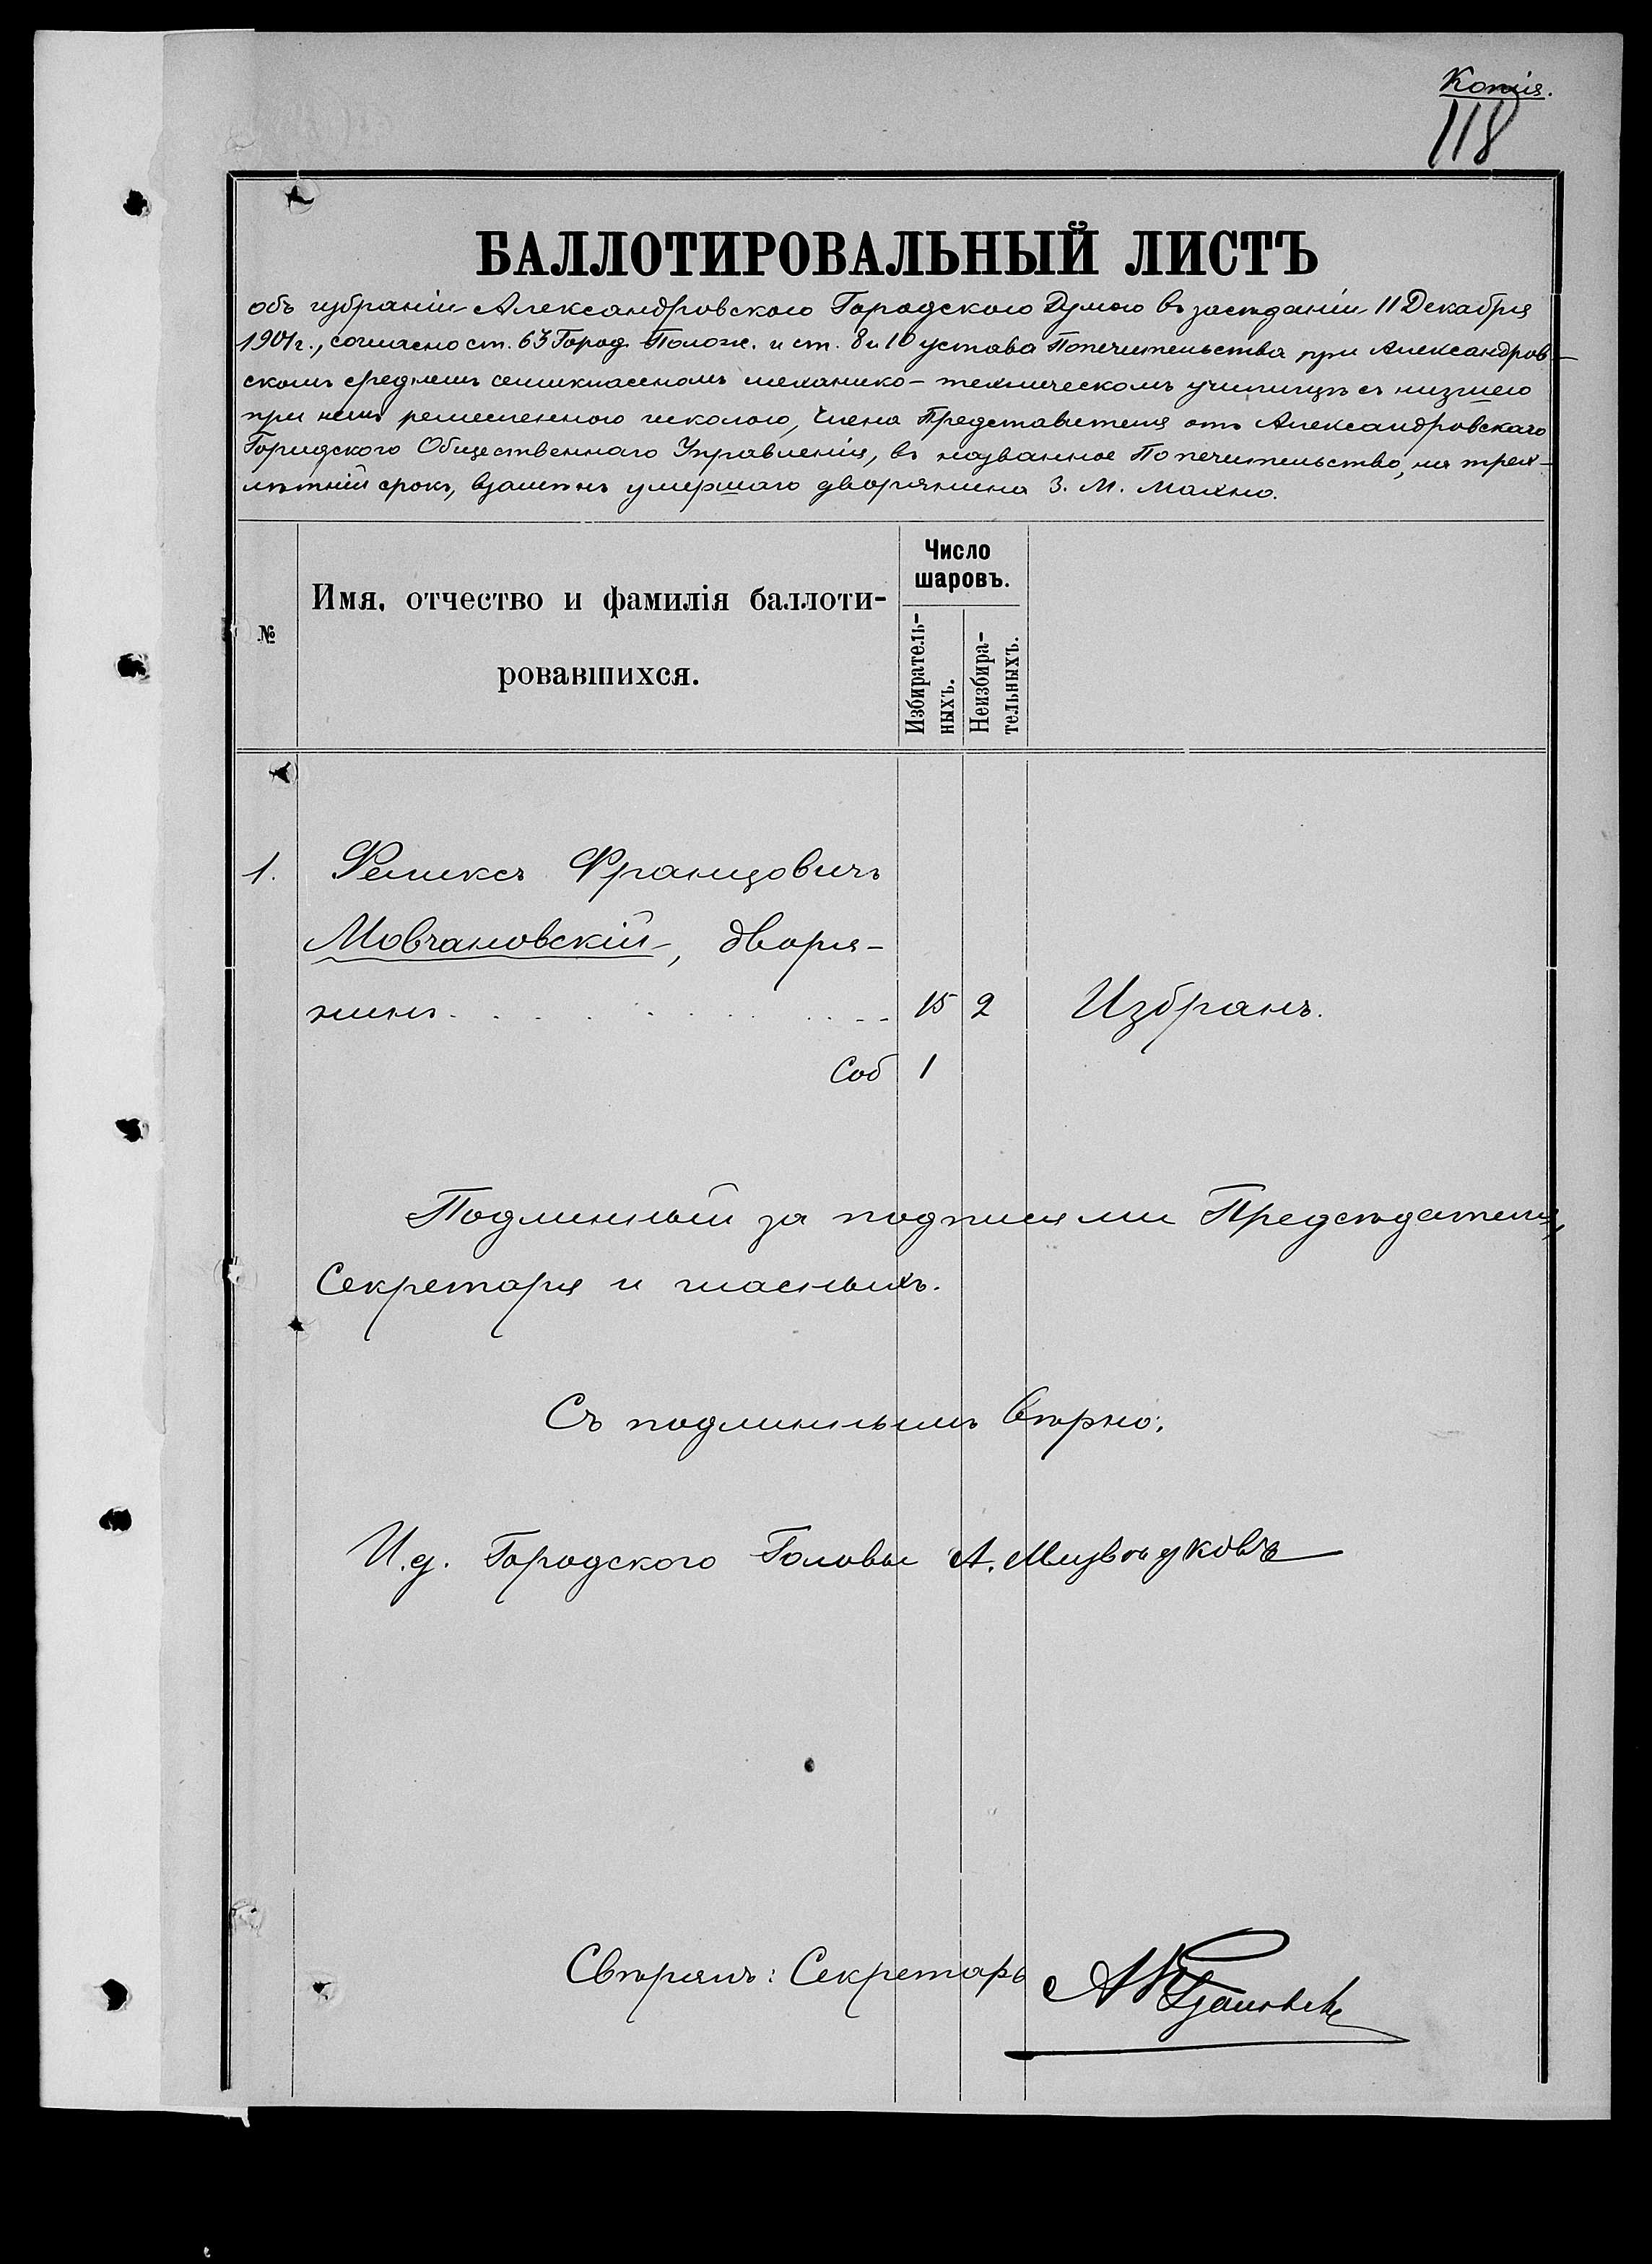 Копія.
118
БАЛЛОТИРОВАЛЬНЫЙ ЛИСТЪ
объ избраніи Александровского Городского Думою въ засѣданіи 11 Декабря
1901 г., согласно ст. 63 Город. Полож. и ст. 8 и 10 устава Попечительства при Александров-
скомъ среднемъ семиклассномъ механико-техническомъ училищѣ съ низшею
при немъ ремесленною школою, Члена Представителя отъ Александровскаго
Городского Общественнаго Управленія, въ названное Попечительство, на трех-
лѣтній срокъ, взамѣнъ умершаго дворянина З. М. Махно.
№
Имя, отчество и фамилія баллоти-
ровавшихся.
Число
шаровъ.
Избиратель-
ныхъ.
Неизбира-
тельныхъ.
1. Феликсъ Францовичъ
Мовчановскій, дворя-
нинъ. . . . . . . . . 15 2 Избранъ.
Соб 1
Подлинный за подписями Предсѣдателя,
Секретаря и гласныхъ.
Съ подлиннымъ вѣрно:
И.д. Городского Головы А. Медвѣдковъ
Свѣрялъ: Секретарь